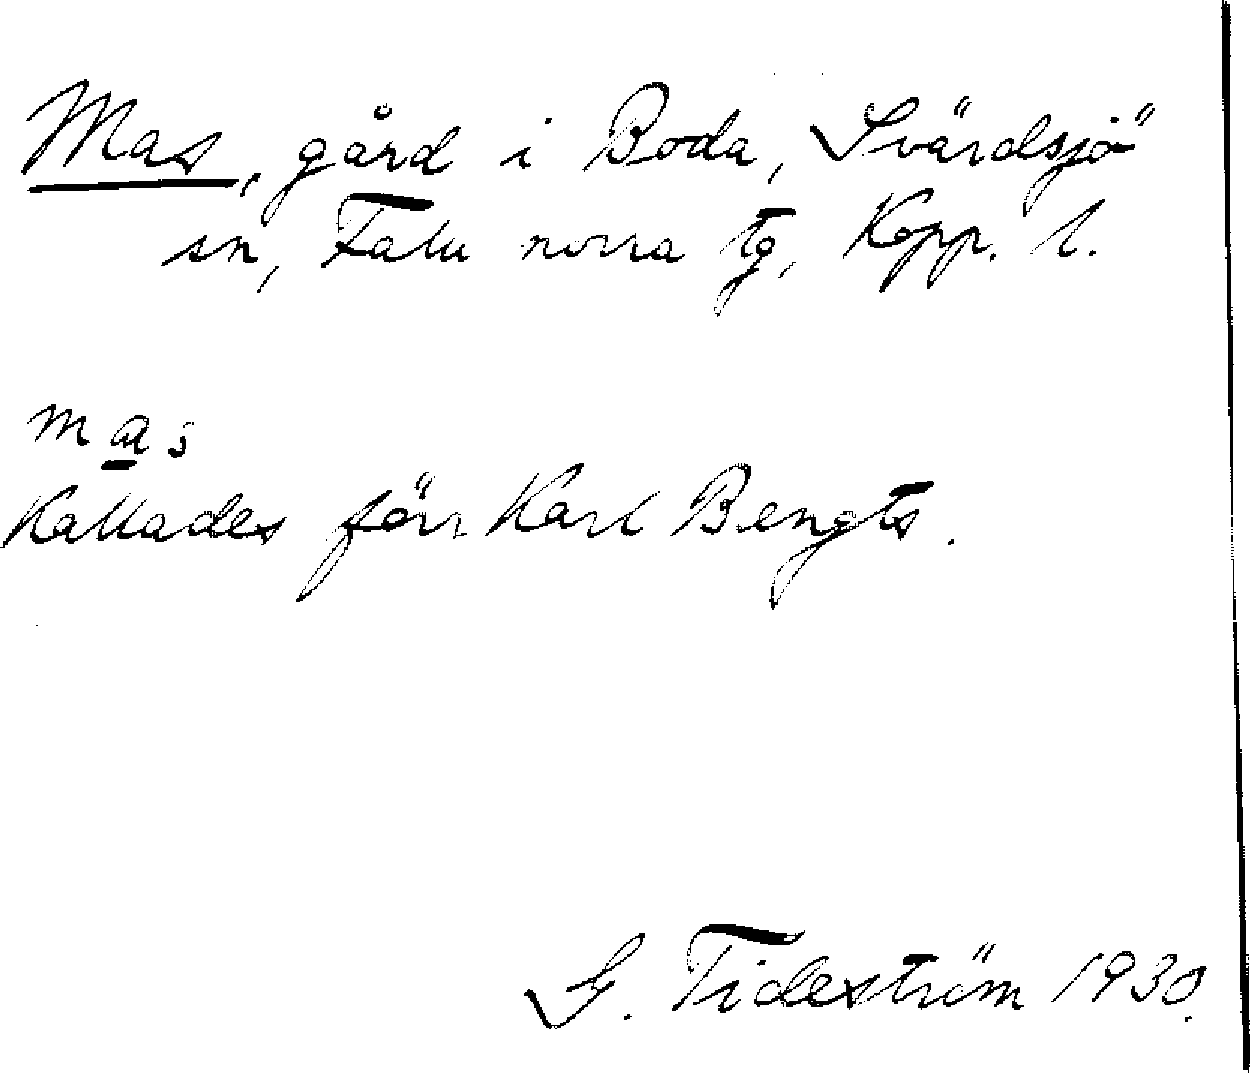 Mas, gård i Boda, Svärdsjö
sn, Falu norra tg, Kopp. l.
mas
Kallades förr Karl Bengts.
G. Tideström 1930.